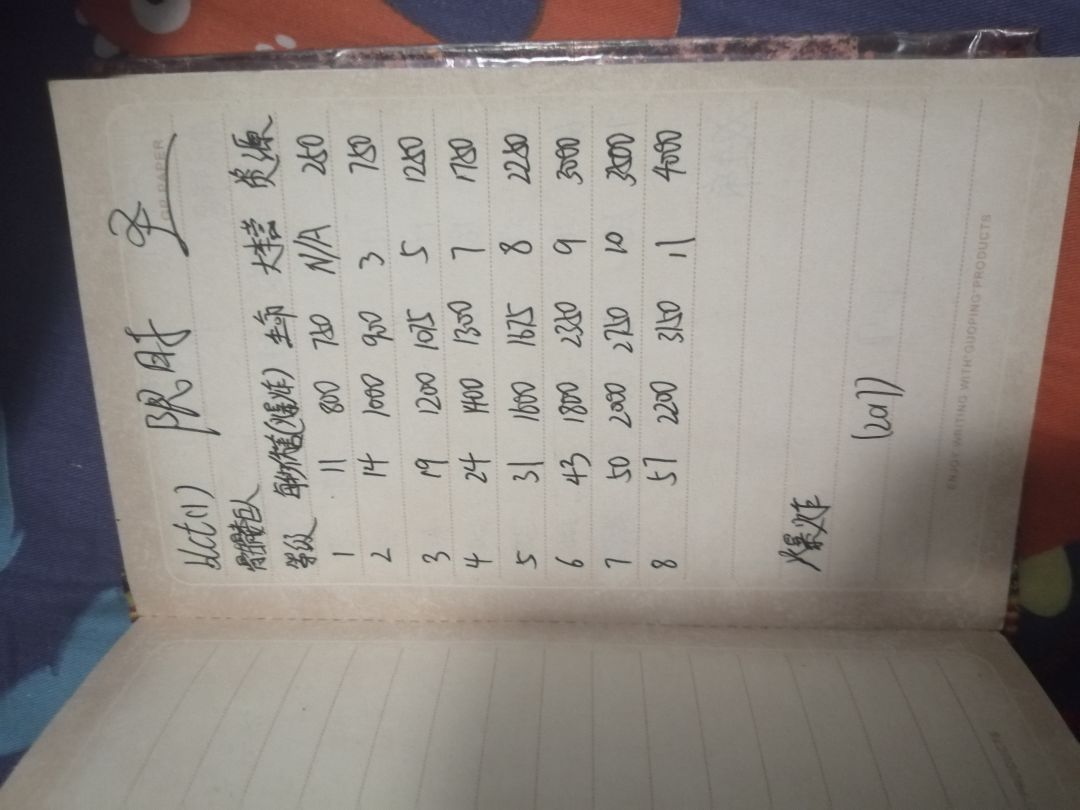 GP PAPER
blct(1) 限时
骷髅巨人
等级 每秒伤害(爆炸) 生命 大本营 资源
1 11 800 750 N/A 250
2 14 1000 900 3 750
3 19 1200 1075 5 1250
4 24 1400 1300 7 1750
5 31 1600 1675 8 2250
6 43 1800 2350 9 3000
7 50 2000 2750 10 3500
8 57 2200 3150 11 4000
爆炸
(2017)
ENJOY WRITING WITH GUOPING PRODUCTS